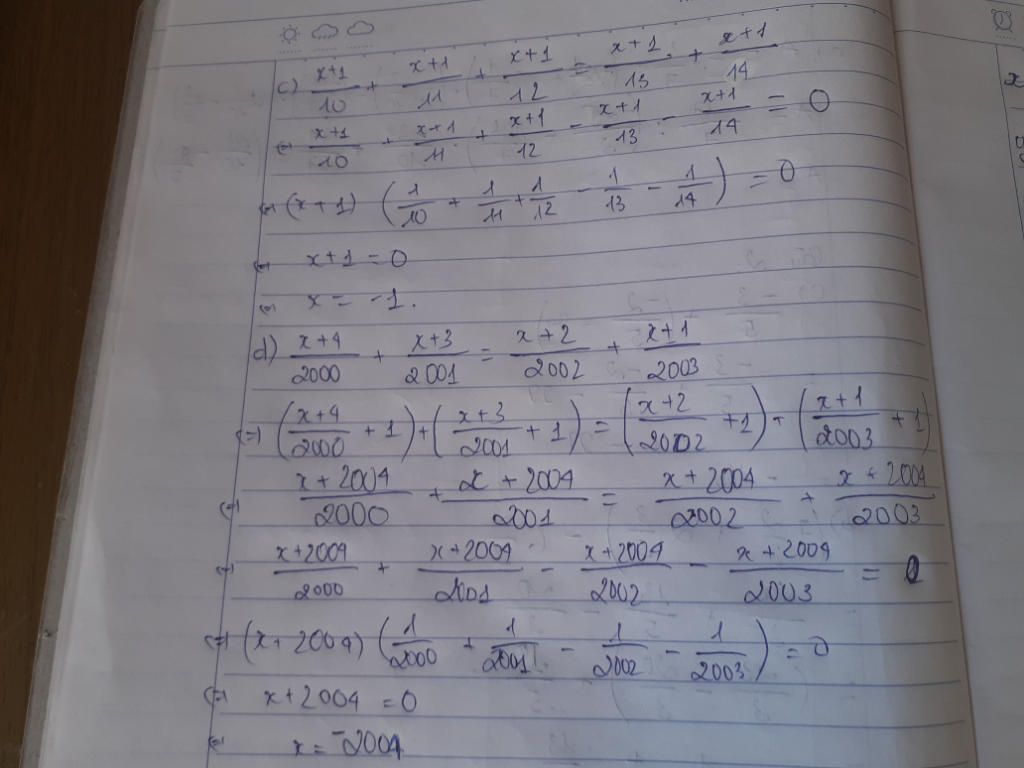 c) (x+1)/10 + (x+1)/11 + (x+1)/12 = (x+1)/13 + (x+1)/14
⇔ (x+1)/10 + (x+1)/11 + (x+1)/12 - (x+1)/13 - (x+1)/14 = 0
⇔ (x+1) (1/10 + 1/11 + 1/12 - 1/13 - 1/14) = 0
⇔ x+1 = 0
⇔ x = -1.
d) (x+4)/2000 + (x+3)/2001 = (x+2)/2002 + (x+1)/2003
⇔ ((x+4)/2000 + 1) + ((x+3)/2001 + 1) = ((x+2)/2002 + 1) + ((x+1)/2003 + 1)
⇔ (x+2004)/2000 + (x+2004)/2001 = (x+2004)/2002 + (x+2004)/2003
⇔ (x+2004)/2000 + (x+2004)/2001 - (x+2004)/2002 - (x+2004)/2003 = 0
⇔ (x+2004) (1/2000 + 1/2001 - 1/2002 - 1/2003) = 0
⇔ x+2004 = 0
⇔ x = -2004